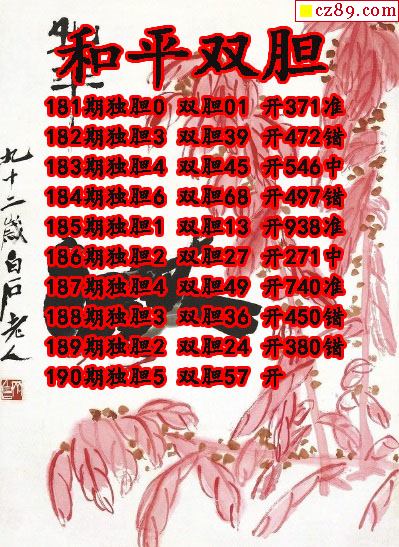 cz89.com
和平双胆
181期独胆0 双胆01 开371准
182期独胆3 双胆39 开472错
183期独胆4 双胆45 开546中
184期独胆6 双胆68 开497错
185期独胆1 双胆13 开938准
186期独胆2 双胆27 开271中
187期独胆4 双胆49 开740准
188期独胆3 双胆36 开450错
189期独胆2 双胆24 开380错
190期独胆5 双胆57 开
九十二岁白石老人